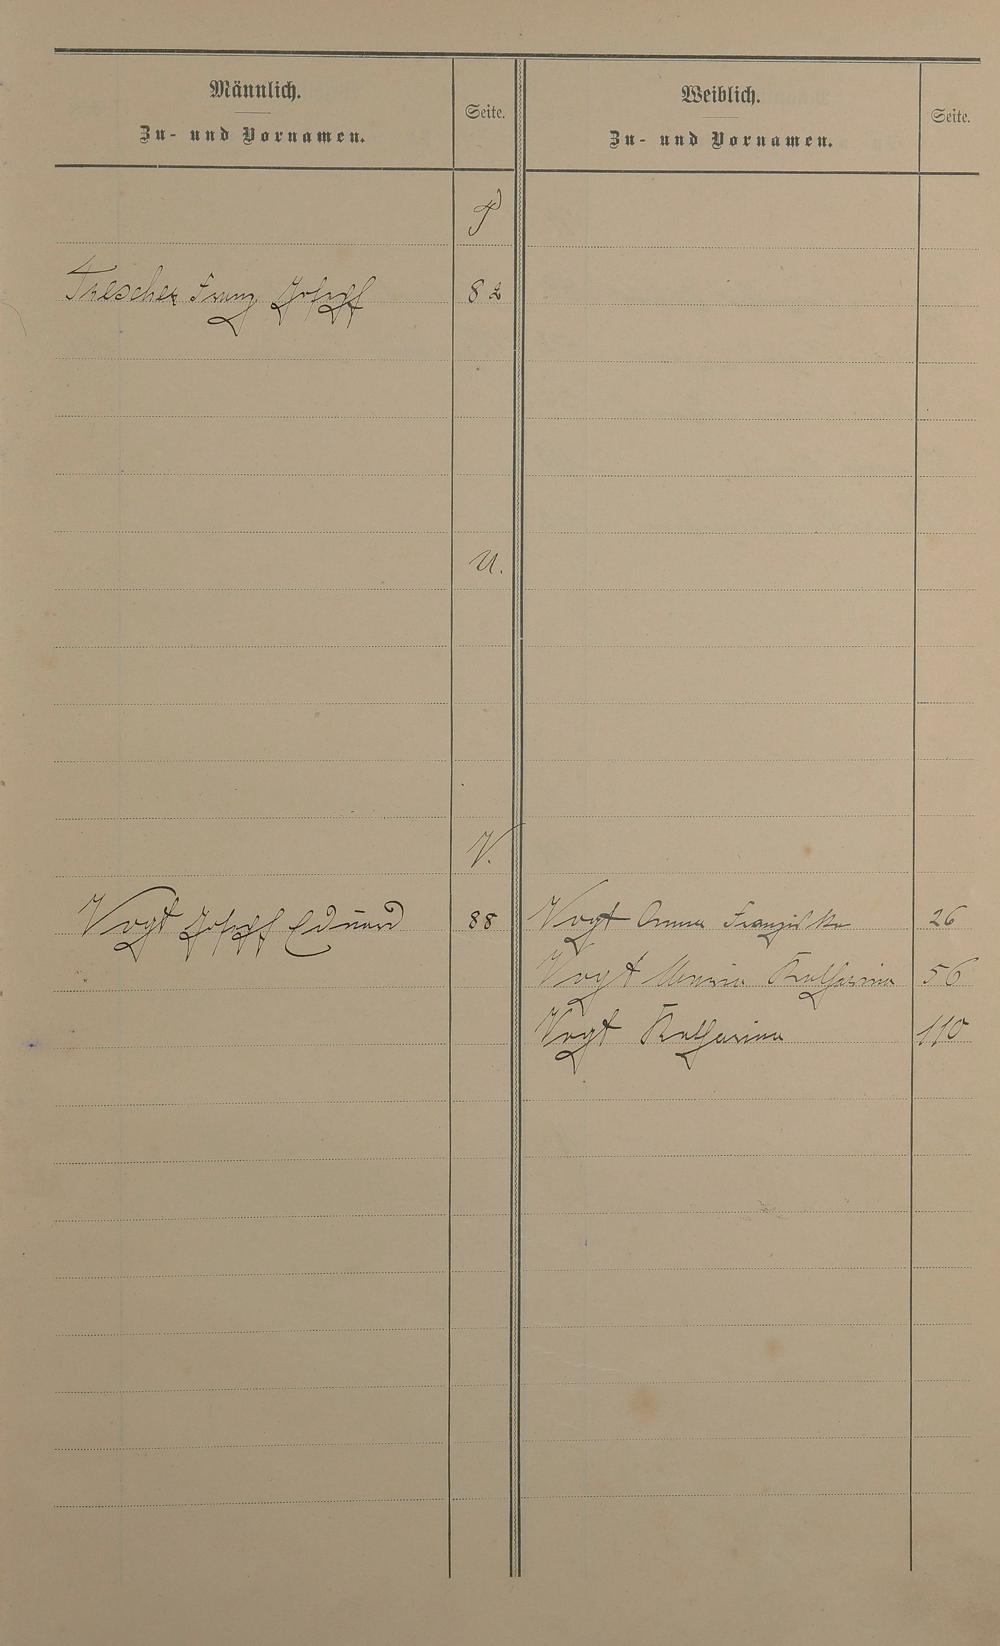 Männlich.
Zu- und Vornamen.
Seite.
Weiblich.
Zu- und Vornamen.
Seite.
T
Trescher Franz Joseph 82
U.
V.
Vogt Joseph Eduard 88 Vogt Anna Franziska 26
Vogt Maria Katharina 56
Vogt Katharina 110